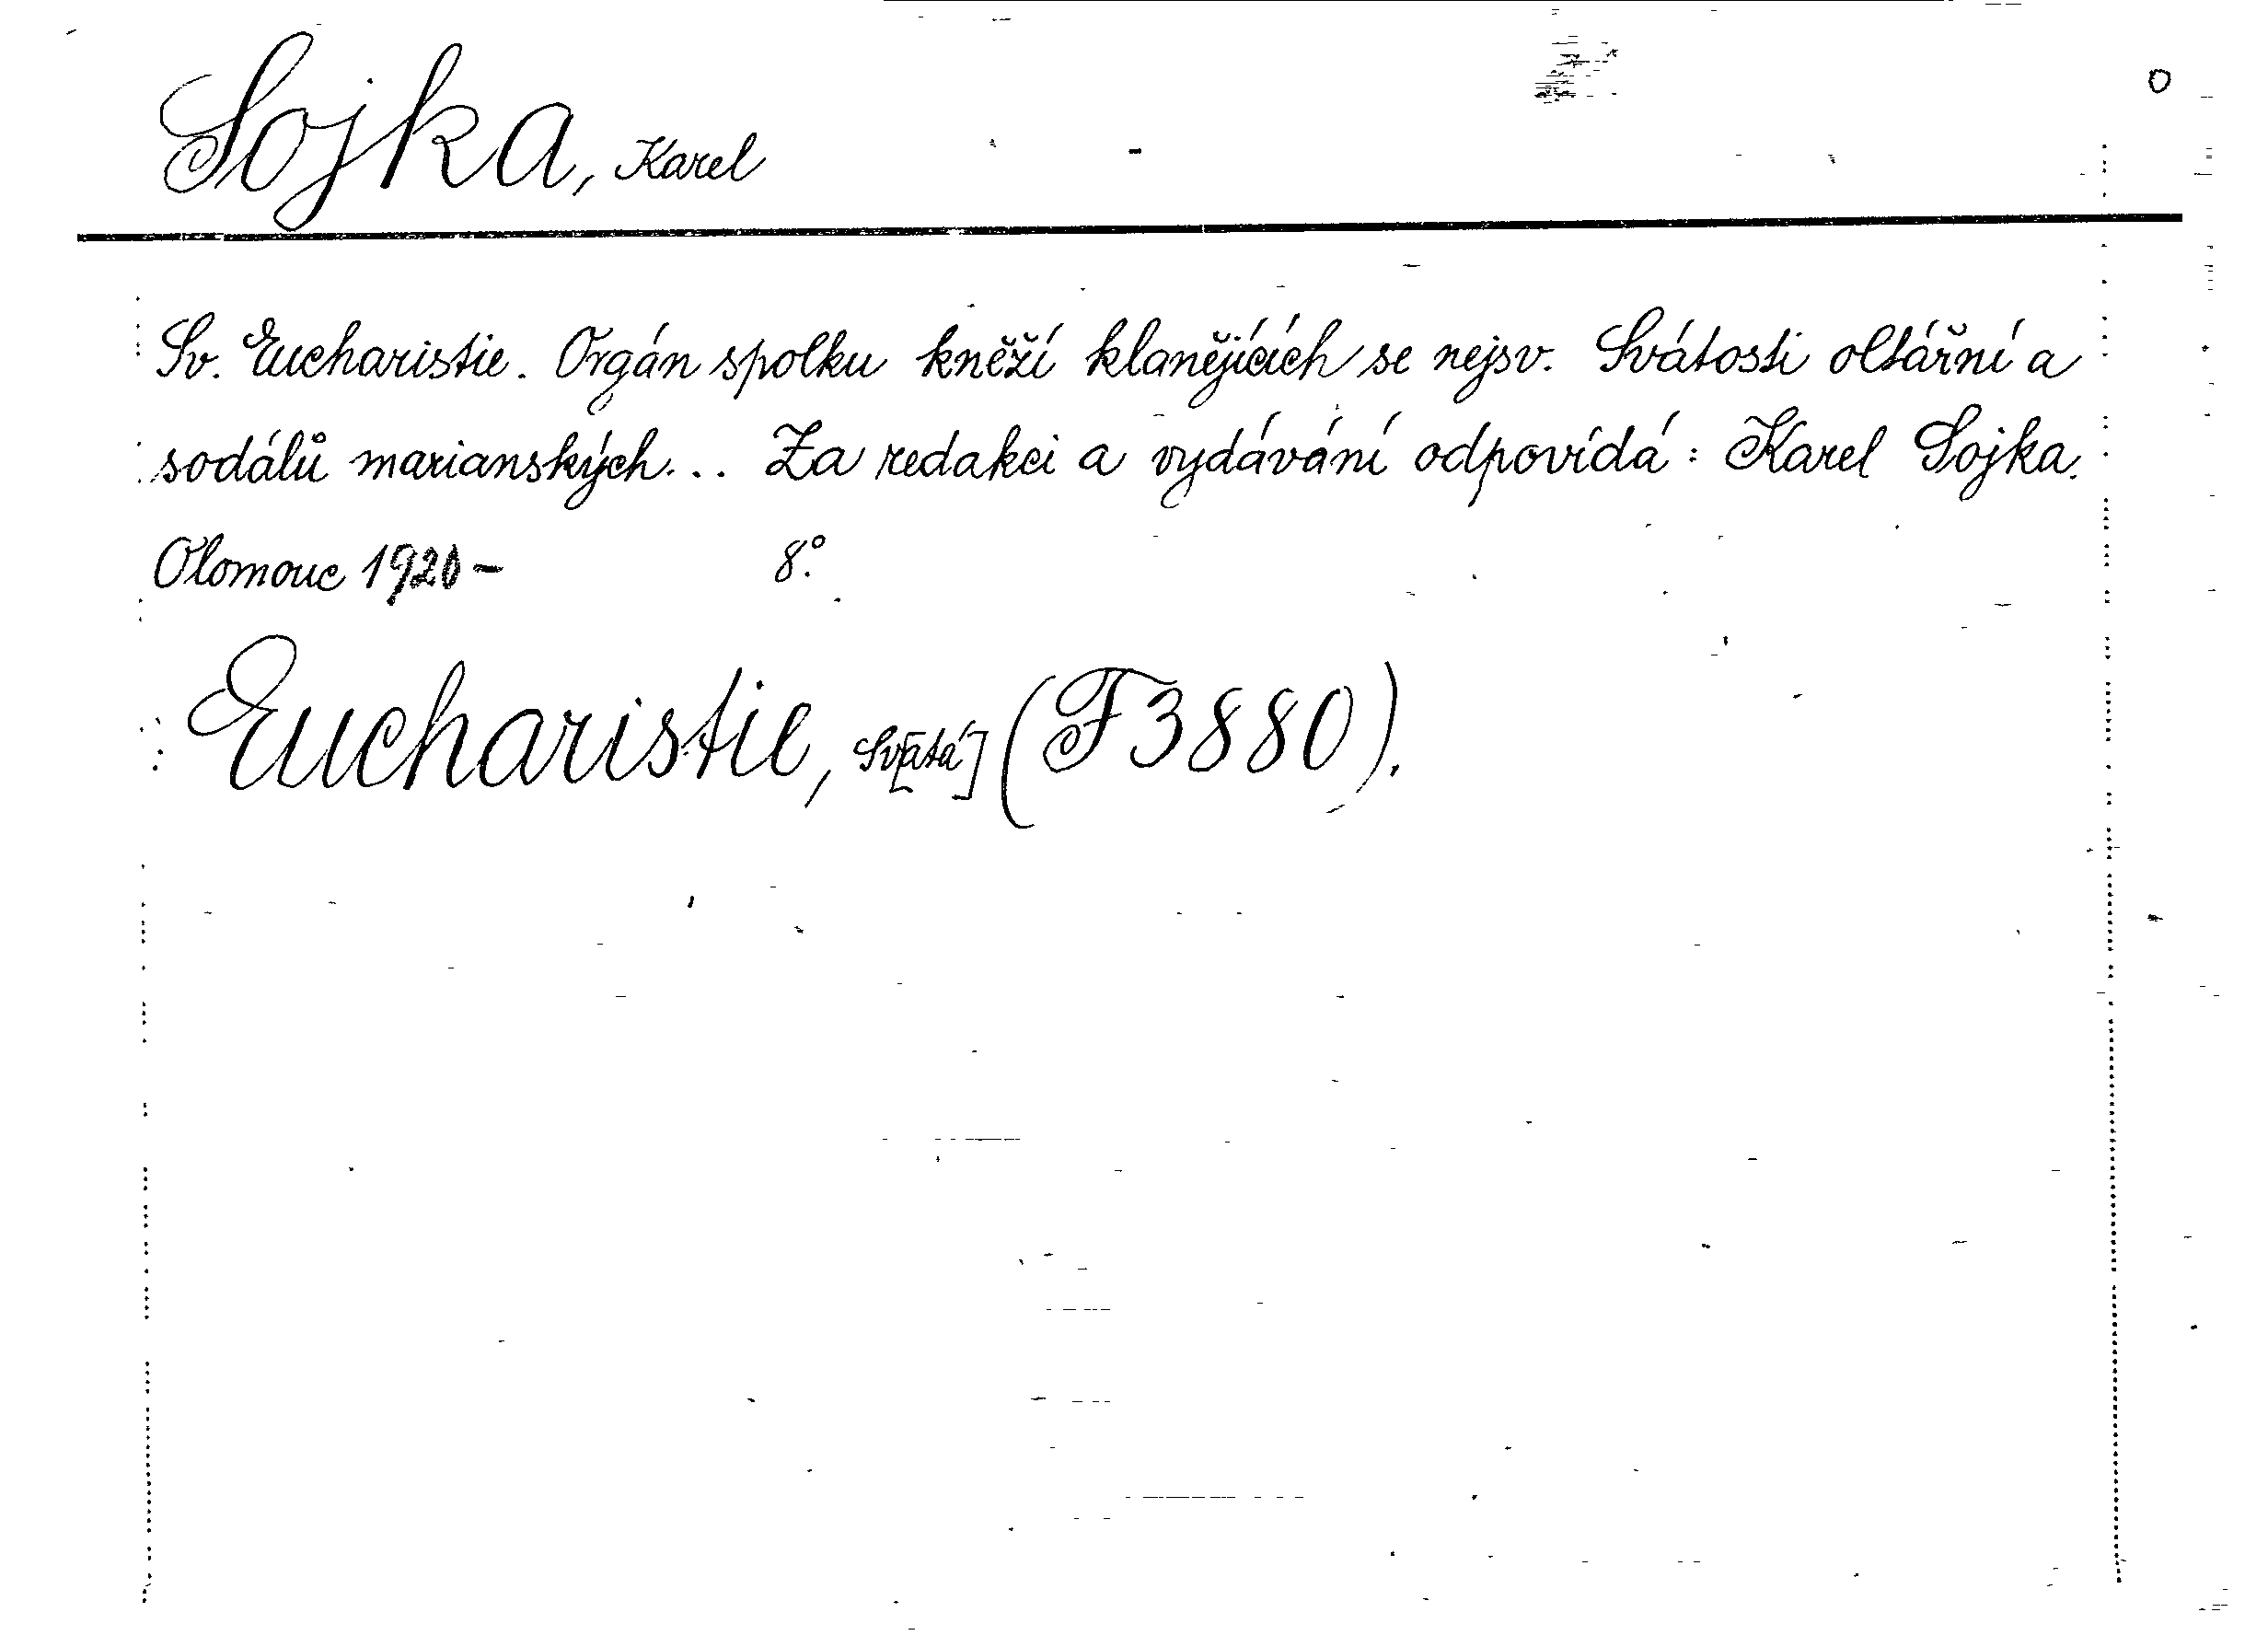 Sojka, Karel
Sv. Eucharistie. Orgán spolku kněží klanějících se nejsv. Svátosti oltářní a
sodálů marianských... Za redakci a vydávání odpovídá: Karel Sojka.
Olomouc 1920- 8°.
Eucharistie, sv[atá] (F 3880).